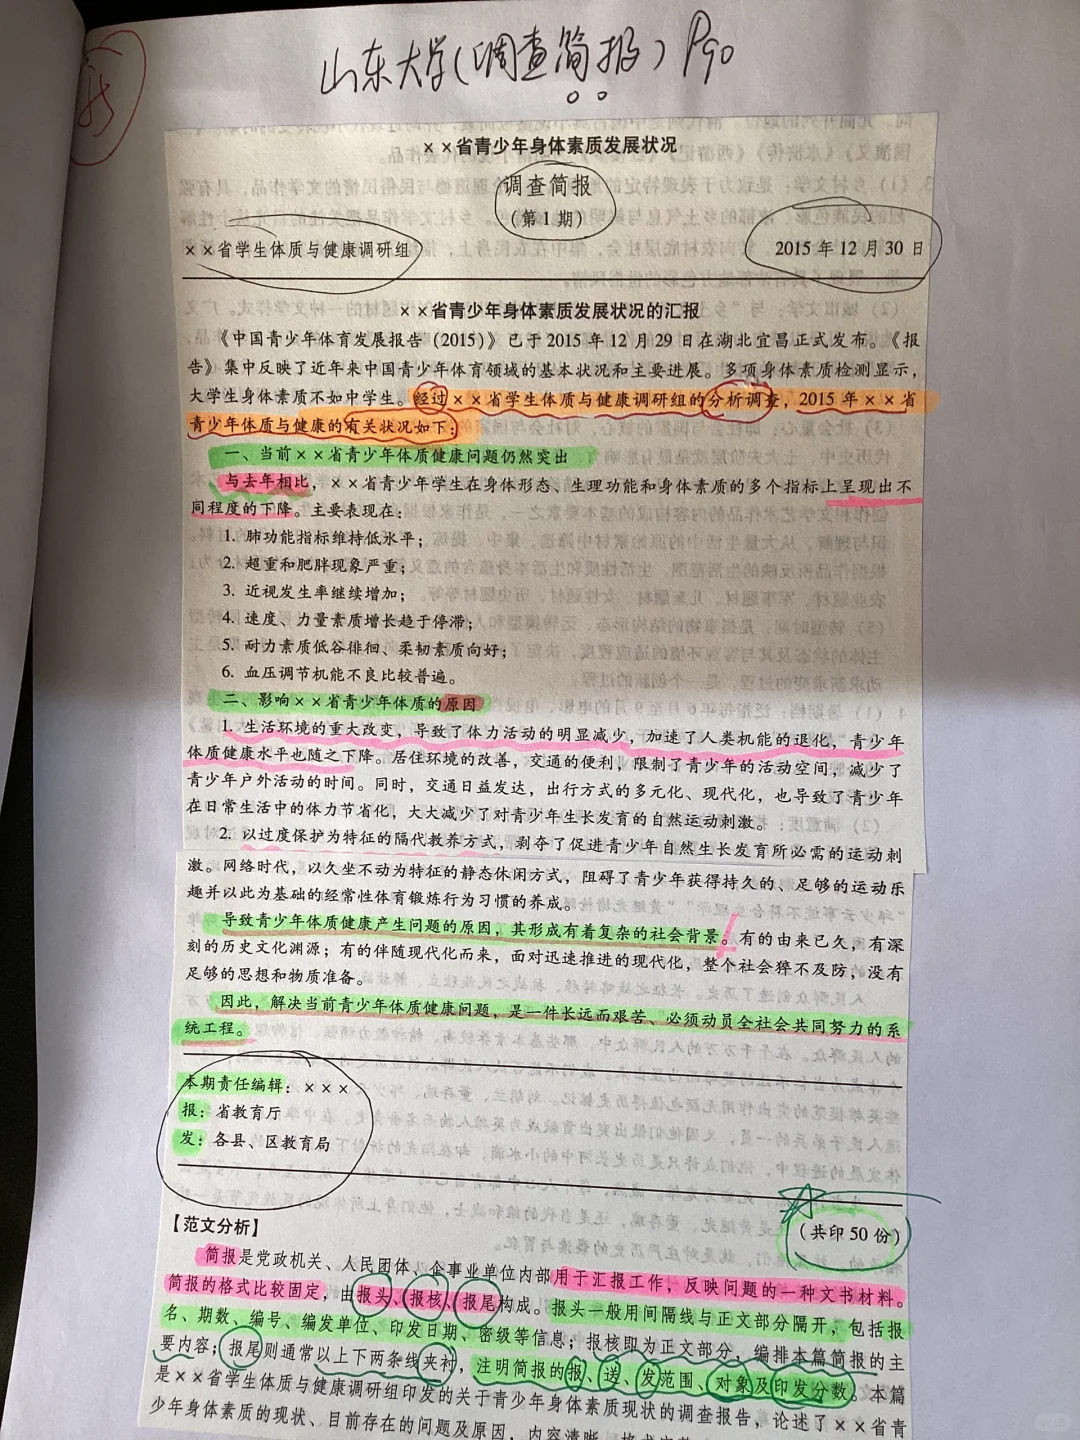 山东大学(调查简报) P90
××省青少年身体素质发展状况
调查简报
(第1期)
××省学生体质与健康调研组 2015年12月30日
××省青少年身体素质发展状况的汇报
《中国青少年体育发展报告(2015)》已于2015年12月29日在湖北宜昌正式发布。《报
告》集中反映了近年来中国青少年体育领域的基本状况和主要进展。多项身体素质检测显示,
大学生身体素质不如中学生。经过××省学生体质与健康调研组的分析调查,2015年××省
青少年体质与健康的有关状况如下:
一、当前××省青少年体质健康问题仍然突出
与去年相比,××省青少年学生在身体形态、生理功能和身体素质的多个指标上呈现出不
同程度的下降。主要表现在:
1. 肺功能指标维持低水平;
2. 超重和肥胖现象严重;
3. 近视发生率继续增加;
4. 速度、力量素质增长趋于停滞;
5. 耐力素质低谷徘徊、柔韧素质向好;
6. 血压调节机能不良比较普遍。
二、影响××省青少年体质的原因
1. 生活环境的重大改变,导致了体力活动的明显减少,加速了人类机能的退化,青少年
体质健康水平也随之下降。居住环境的改善,交通的便利,限制了青少年的活动空间,减少了
青少年户外活动的时间。同时,交通日益发达,出行方式的多元化、现代化,也导致了青少年
在日常生活中的体力节省化,大大减少了对青少年生长发育的自然运动刺激。
2. 以过度保护为特征的隔代教养方式,剥夺了促进青少年自然生长发育所必需的运动刺
激。网络时代,以久坐不动为特征的静态休闲方式,阻碍了青少年获得持久的、足够的运动乐
趣并以此为基础的经常性体育锻炼行为习惯的养成。
导致青少年体质健康产生问题的原因,其形成有着复杂的社会背景。有的由来已久,有深
刻的历史文化渊源;有的伴随现代化而来,面对迅速推进的现代化,整个社会猝不及防,没有
足够的思想和物质准备。
因此,解决当前青少年体质健康问题,是一件长远而艰苦、必须动员全社会共同努力的系
统工程。
本期责任编辑:×××
报:省教育厅
发:各县、区教育局
(共印50份)
【范文分析】
简报是党政机关、人民团体、企事业单位内部用于汇报工作,反映问题的一种文书材料。
简报的格式比较固定,由报头、报核、报尾构成。报头一般用间隔线与正文部分隔开,包括报
名、期数、编号、编发单位、印发日期、密级等信息;报核即为正文部分,编排本篇简报的主
要内容;报尾则通常以上下两条线夹衬,注明简报的报、送、发范围、对象及印发份数。本篇
是××省学生体质与健康调研组印发的关于青少年身体素质现状的调查报告,论述了××省青
少年身体素质的现状、目前存在的问题及原因,内容清晰